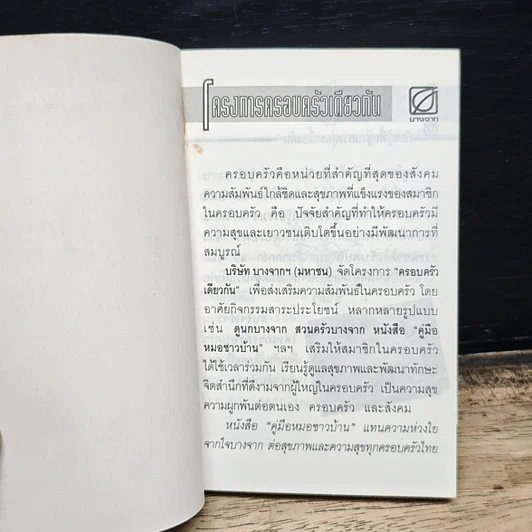 โครงการครอบครัวเดียวกัน
บางจาก
ครอบครัวคือหน่วยที่สำคัญที่สุดของสังคม
ความสัมพันธ์ใกล้ชิดและสุขภาพที่แข็งแรงของสมาชิก
ในครอบครัว คือ ปัจจัยสำคัญที่ทำให้ครอบครัวมี
ความสุขและเยาวชนเติบโตขึ้นอย่างมีพัฒนาการที่
สมบูรณ์
บริษัท บางจากฯ (มหาชน) จัดโครงการ "ครอบครัว
เดียวกัน" เพื่อส่งเสริมความสัมพันธ์ในครอบครัว โดย
อาศัยกิจกรรมสาระประโยชน์ หลากหลายรูปแบบ
เช่น ดูนกบางจาก สวนครัวบางจาก หนังสือ "คู่มือ
หมอชาวบ้าน" ฯลฯ เสริมให้สมาชิกในครอบครัว
ได้ใช้เวลาร่วมกัน เรียนรู้ดูแลสุขภาพและพัฒนาทักษะ
จิตสำนึกที่ดีงามจากผู้ใหญ่ในครอบครัว เป็นความสุข
ความผูกพันต่อตนเอง ครอบครัว และสังคม
หนังสือ "คู่มือหมอชาวบ้าน" แทนความห่วงใย
จากใจบางจาก ต่อสุขภาพและความสุขทุกครอบครัวไทย